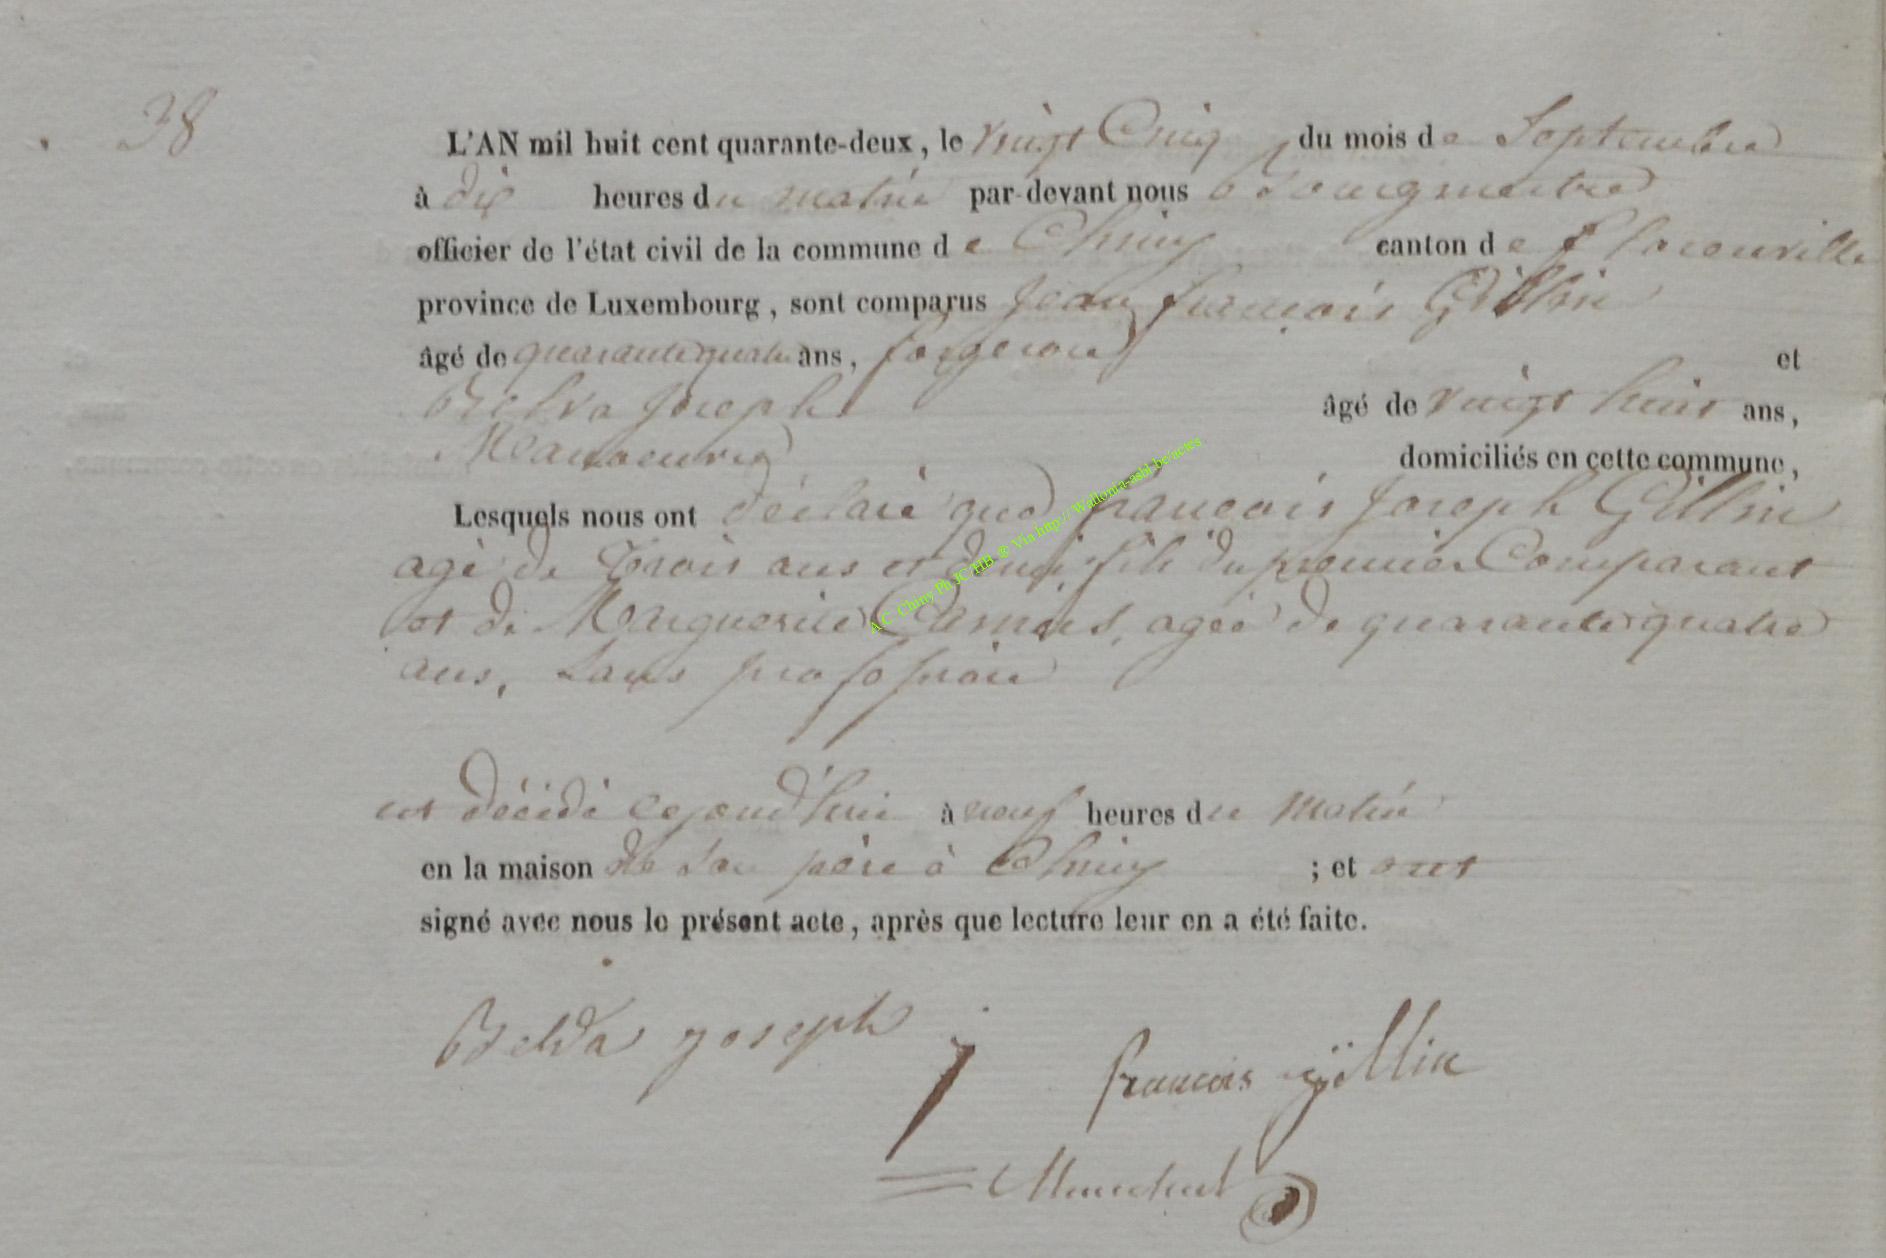 38
L'AN mil huit cent quarante-deux, le vingt Cinq du mois de Septembre
à dix heures du matin par-devant nous Bourgmestre
officier de l'état civil de la commune de Chiny canton de florenville
province de Luxembourg, sont comparus Jean françois Gillin
âgé de quarante quatre ans, forgeron et
Belva Joseph âgé de vingt huit ans,
Manoeuvre domiciliés en cette commune,
Lesquels nous ont déclaré que françois Joseph Gillin
agé de Trois ans et demi, fils du premier Comparant
et de Marguerite agée de quarante quatre
ans, Sans profession
est décédé cejourd'hui à neuf heures du matin
en la maison de son père à Chiny ; et ont
signé avec nous le présent acte, après que lecture leur en a été faite.
Belva joseph
j francois gillin
A.C. Chiny Ph JC HB ® Via http://Wallonia-asbl.be/actes